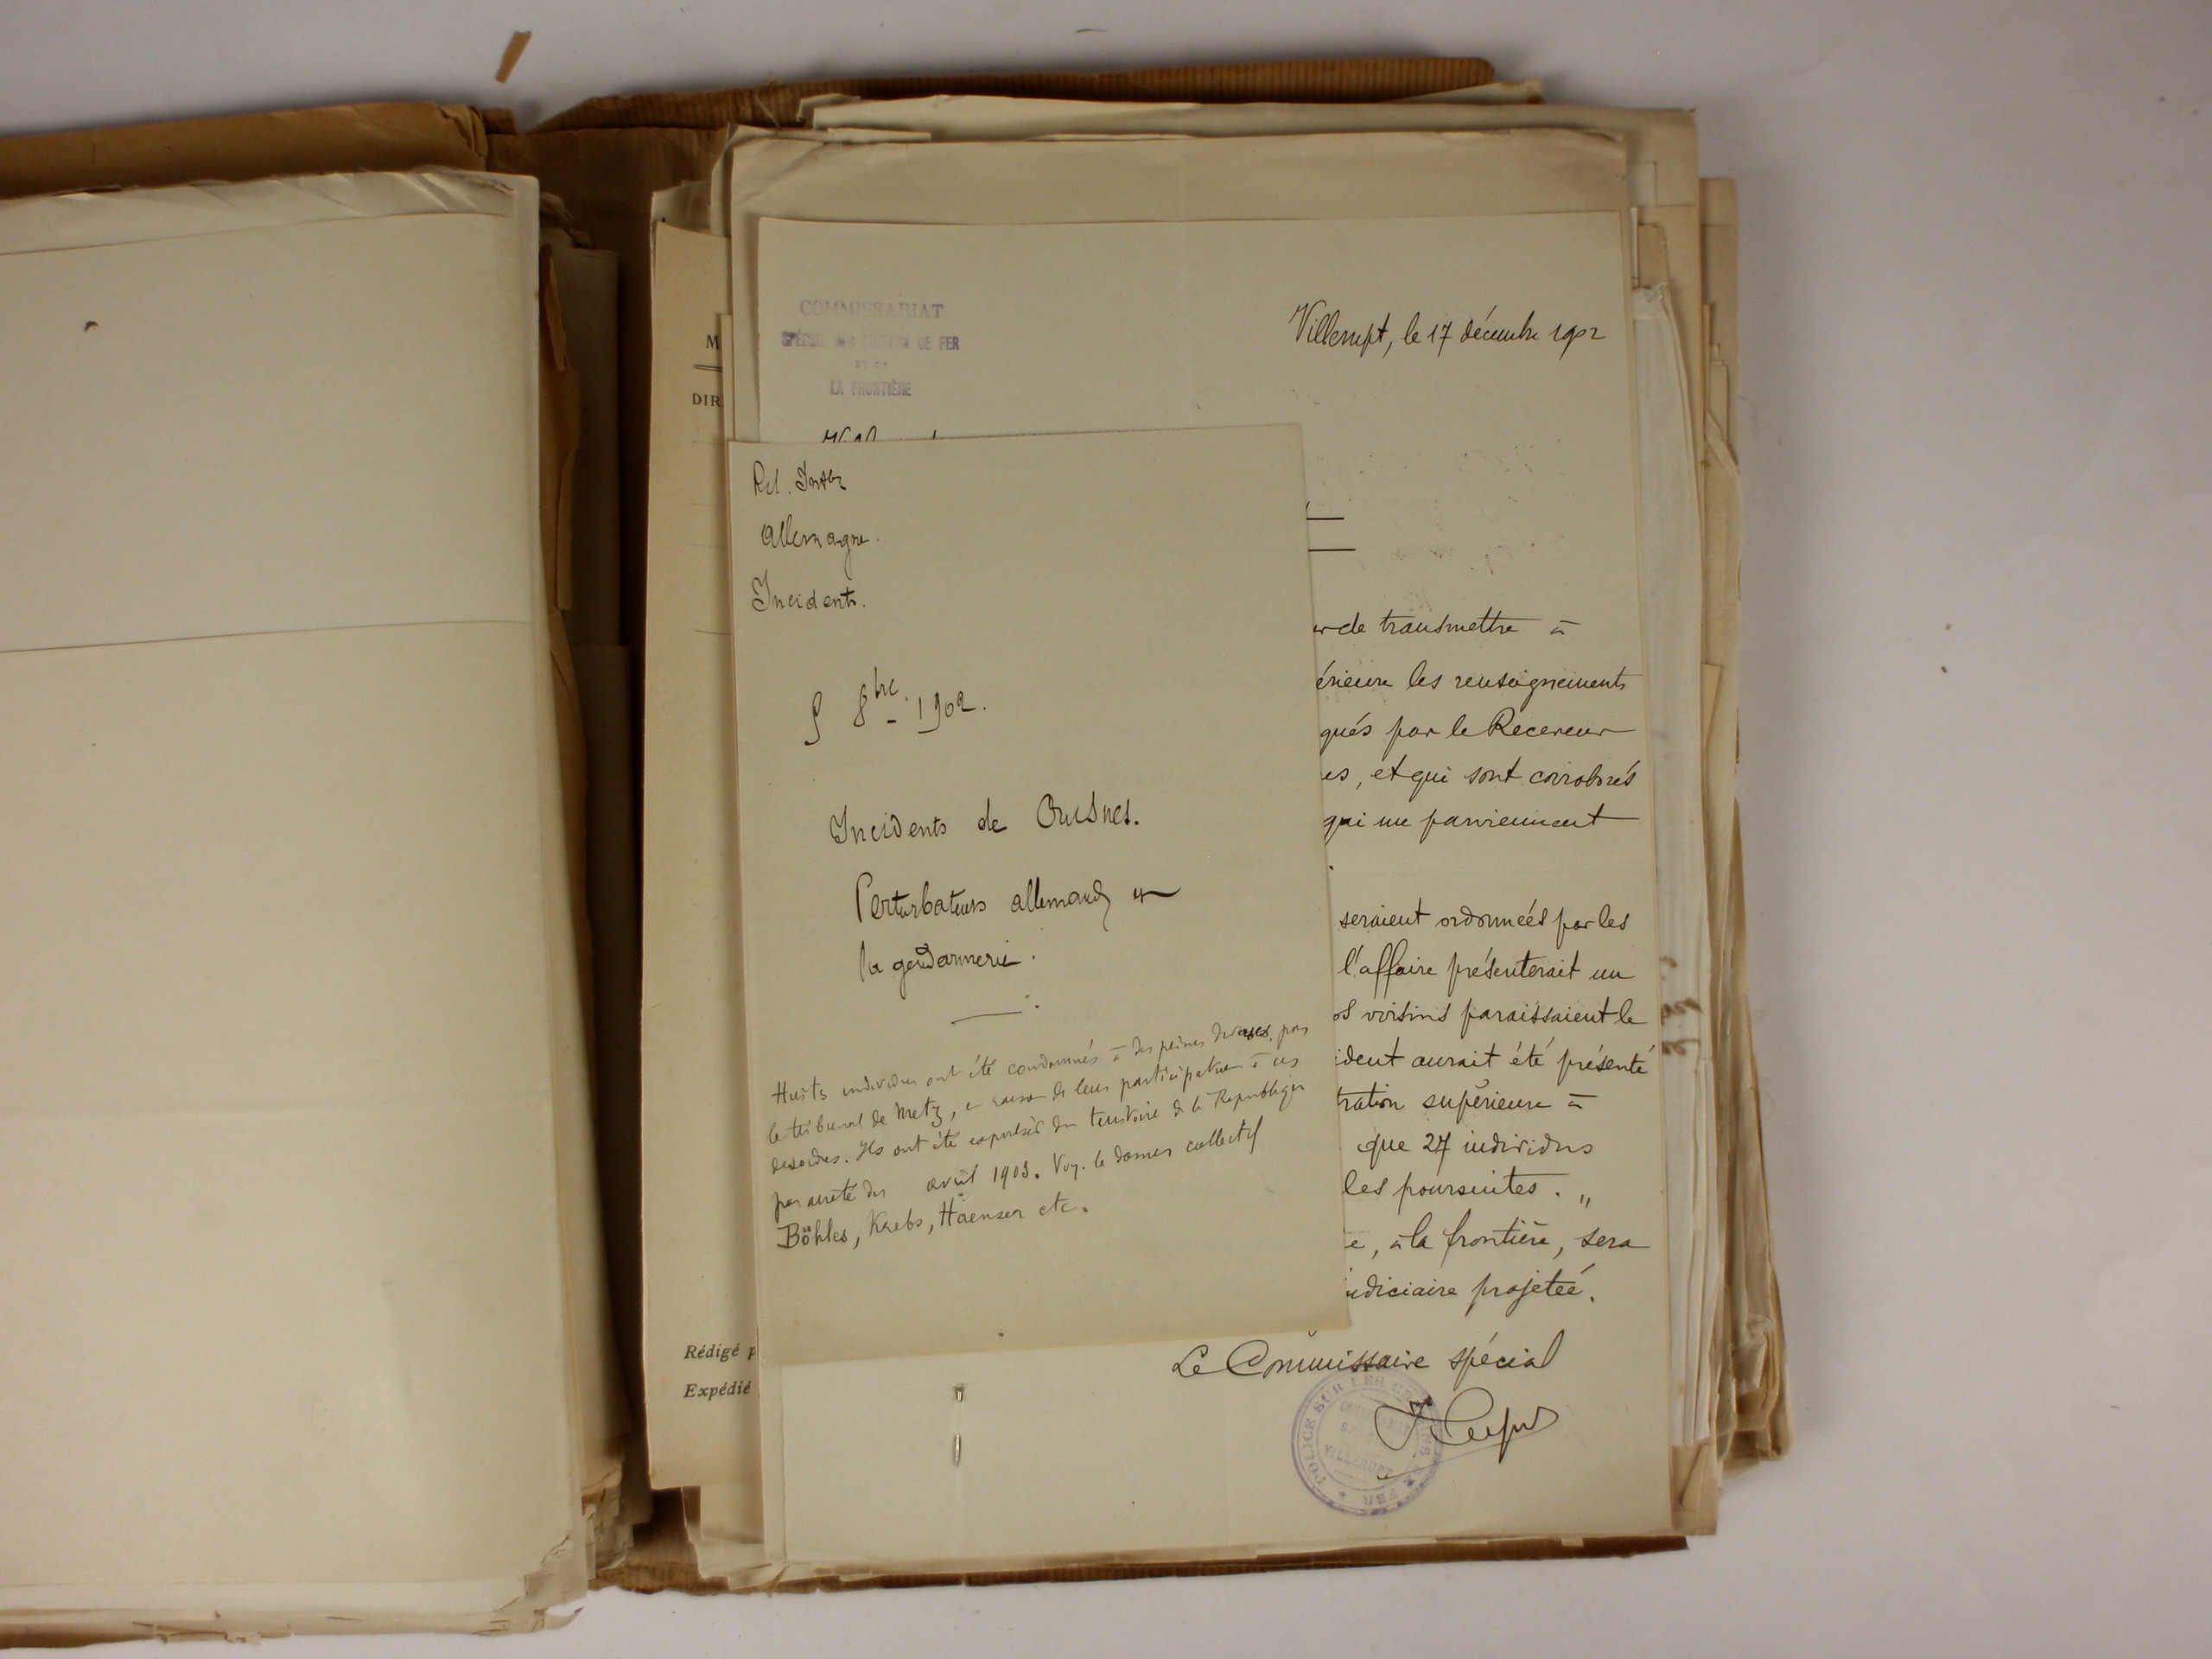 COMMISSARIAT
SPÉCIAL DES CHEMINS DE FER
ET DE
LA FRONTIÈRE
Villerupt, le 17 décembre 1902
M
DIR
Allemagne.
Incidents.
8bre. 1902.
Incidents de
Perturbateurs allemands et
la gendarmerie.
Huits individus ont été condamnés à des peines diverses, par
le tribunal de Metz, à raison de leur participation à ces
desordres. Ils ont été expulsés du territoire de la République
par arrêté du avril 1903. Voy. le dossier collectif
Böhles, Krebs, Häenser etc.
de transmettre à
érieure les renseignements
qués par le Receveur
es, et qui sont corroborés
qui me parviennent
seraient ordonnées par les
l'affaire présenterait un
os voisins paraissaient le
ident aurait été présenté
tration supérieure à
que 27 individus
les poursuites. „
e, à la frontière, sera
udiciaire projetée.
Le Commissaire spécial
POLICE SUR LES CHEMINS DE FER
COMMISSARIAT
SPÉCIAL
VILLERUPT
Rédigé p
Expédié